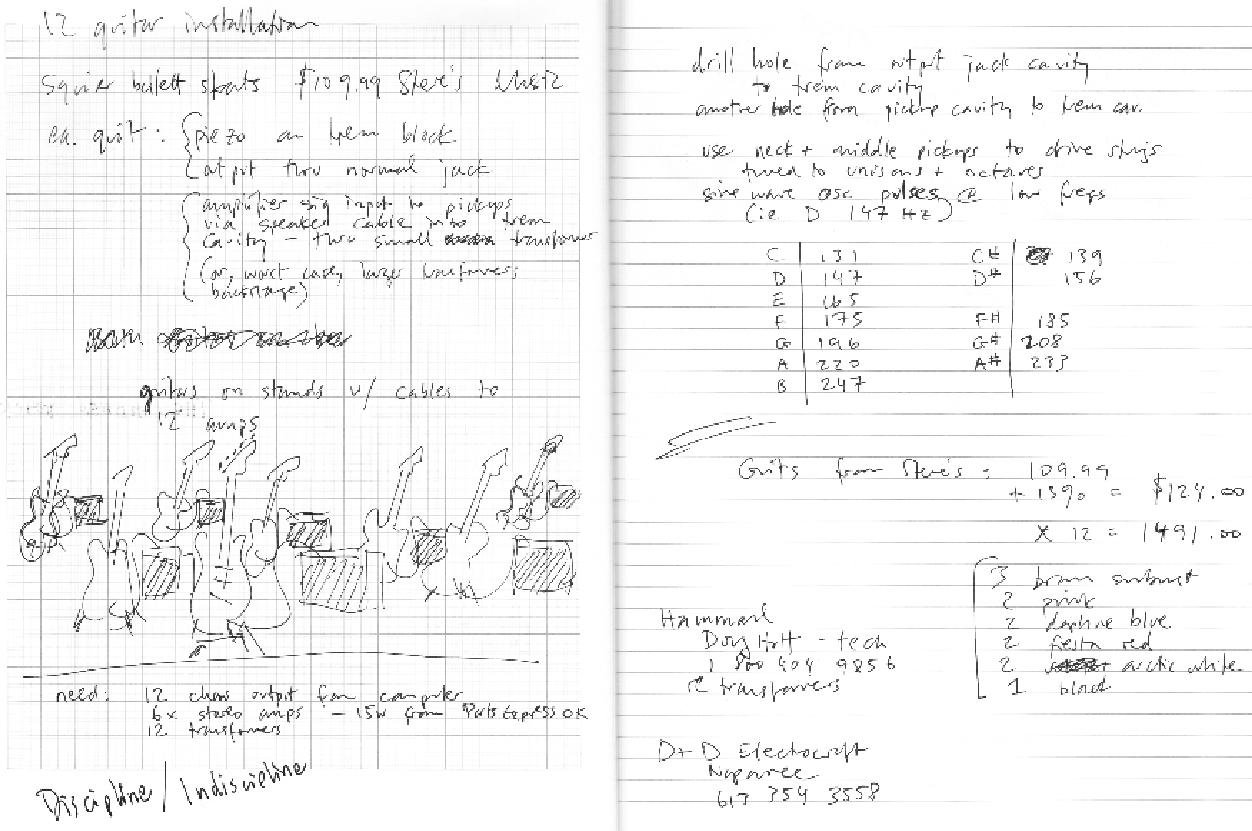 12 guitar installation
Squier bullett strats $109.99 Steve's
ea. guit: piezo on trem block
output thru normal jack
amplifier sig input to pickups
via speaker cable into trem
cavity – thru small transformer
(or, worst case, larger transformers
backstage)
guitars on stands w/ cables to
12 amps
need: 12 chans output from computer
6x stereo amps – 15w from Parts Express OK
12 transformers
Discipline / Indiscipline
drill hole from output jack cavity
to trem cavity
another hole from pickup cavity to trem cav.
use neck + middle pickups to drive strings
tuned to unisons + octaves
sine wave osc pulses @ low freqs
(ie D 147 Hz)
C 131 C# 139
D 147 D# 156
E 165
F 175 F# 185
G 196 G# 208
A 220 A# 233
B 247
Guits from Steve's: 109.99
+ 13% = $124.00
x 12 = 1491.00
3 brown sunburst
2 pink
2 daphne blue
2 fiesta red
2 arctic white
1 black
Hammond
Doug Hott – tech
1 800 404 9856
re transformers
D+D Electrocraft
617 354 3558